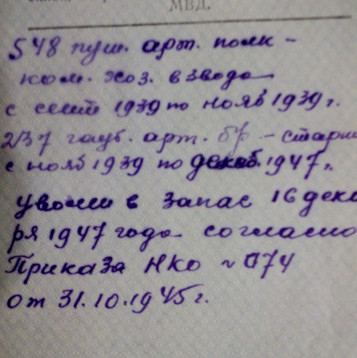 МВД.
548 пуш. арт. полк –
ком. хоз. взвода
с сент 1939 по нояб 1939 г.
2/37 гауб. арт. бр – старш
с нояб 1939 по декаб. 1947 г.
уволен в запас 16 дека
ря 1947 года согласно
Приказа НКО № 074
от 31.10.1945 г.